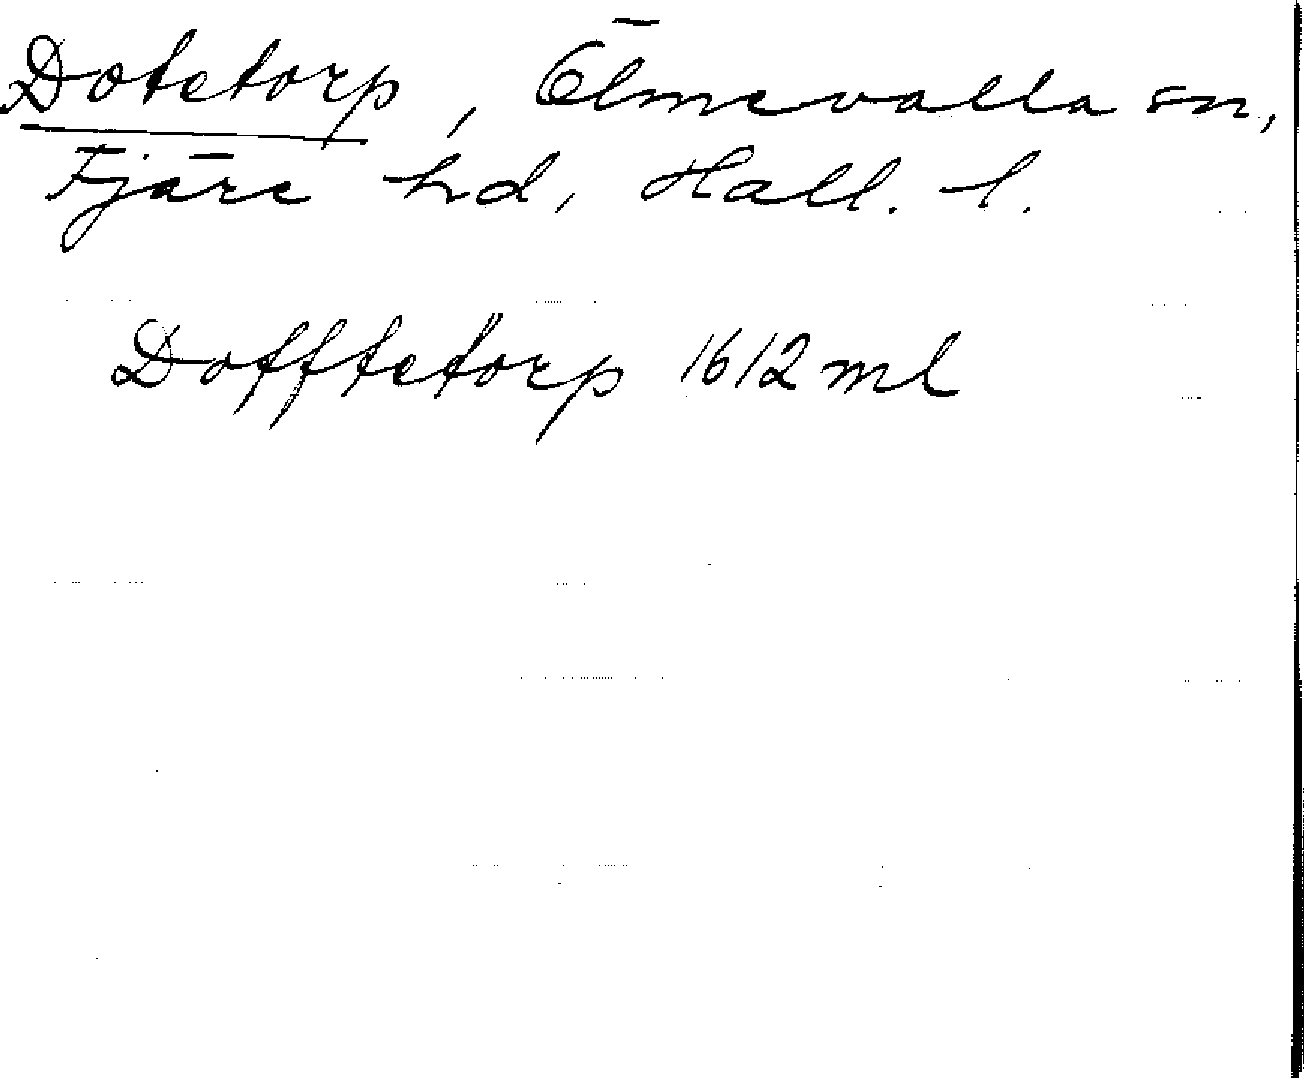 Dotetorp, Ölmevalla sn,
Fjäre hd, Hall. l.
Dofftetörp 1612 ml